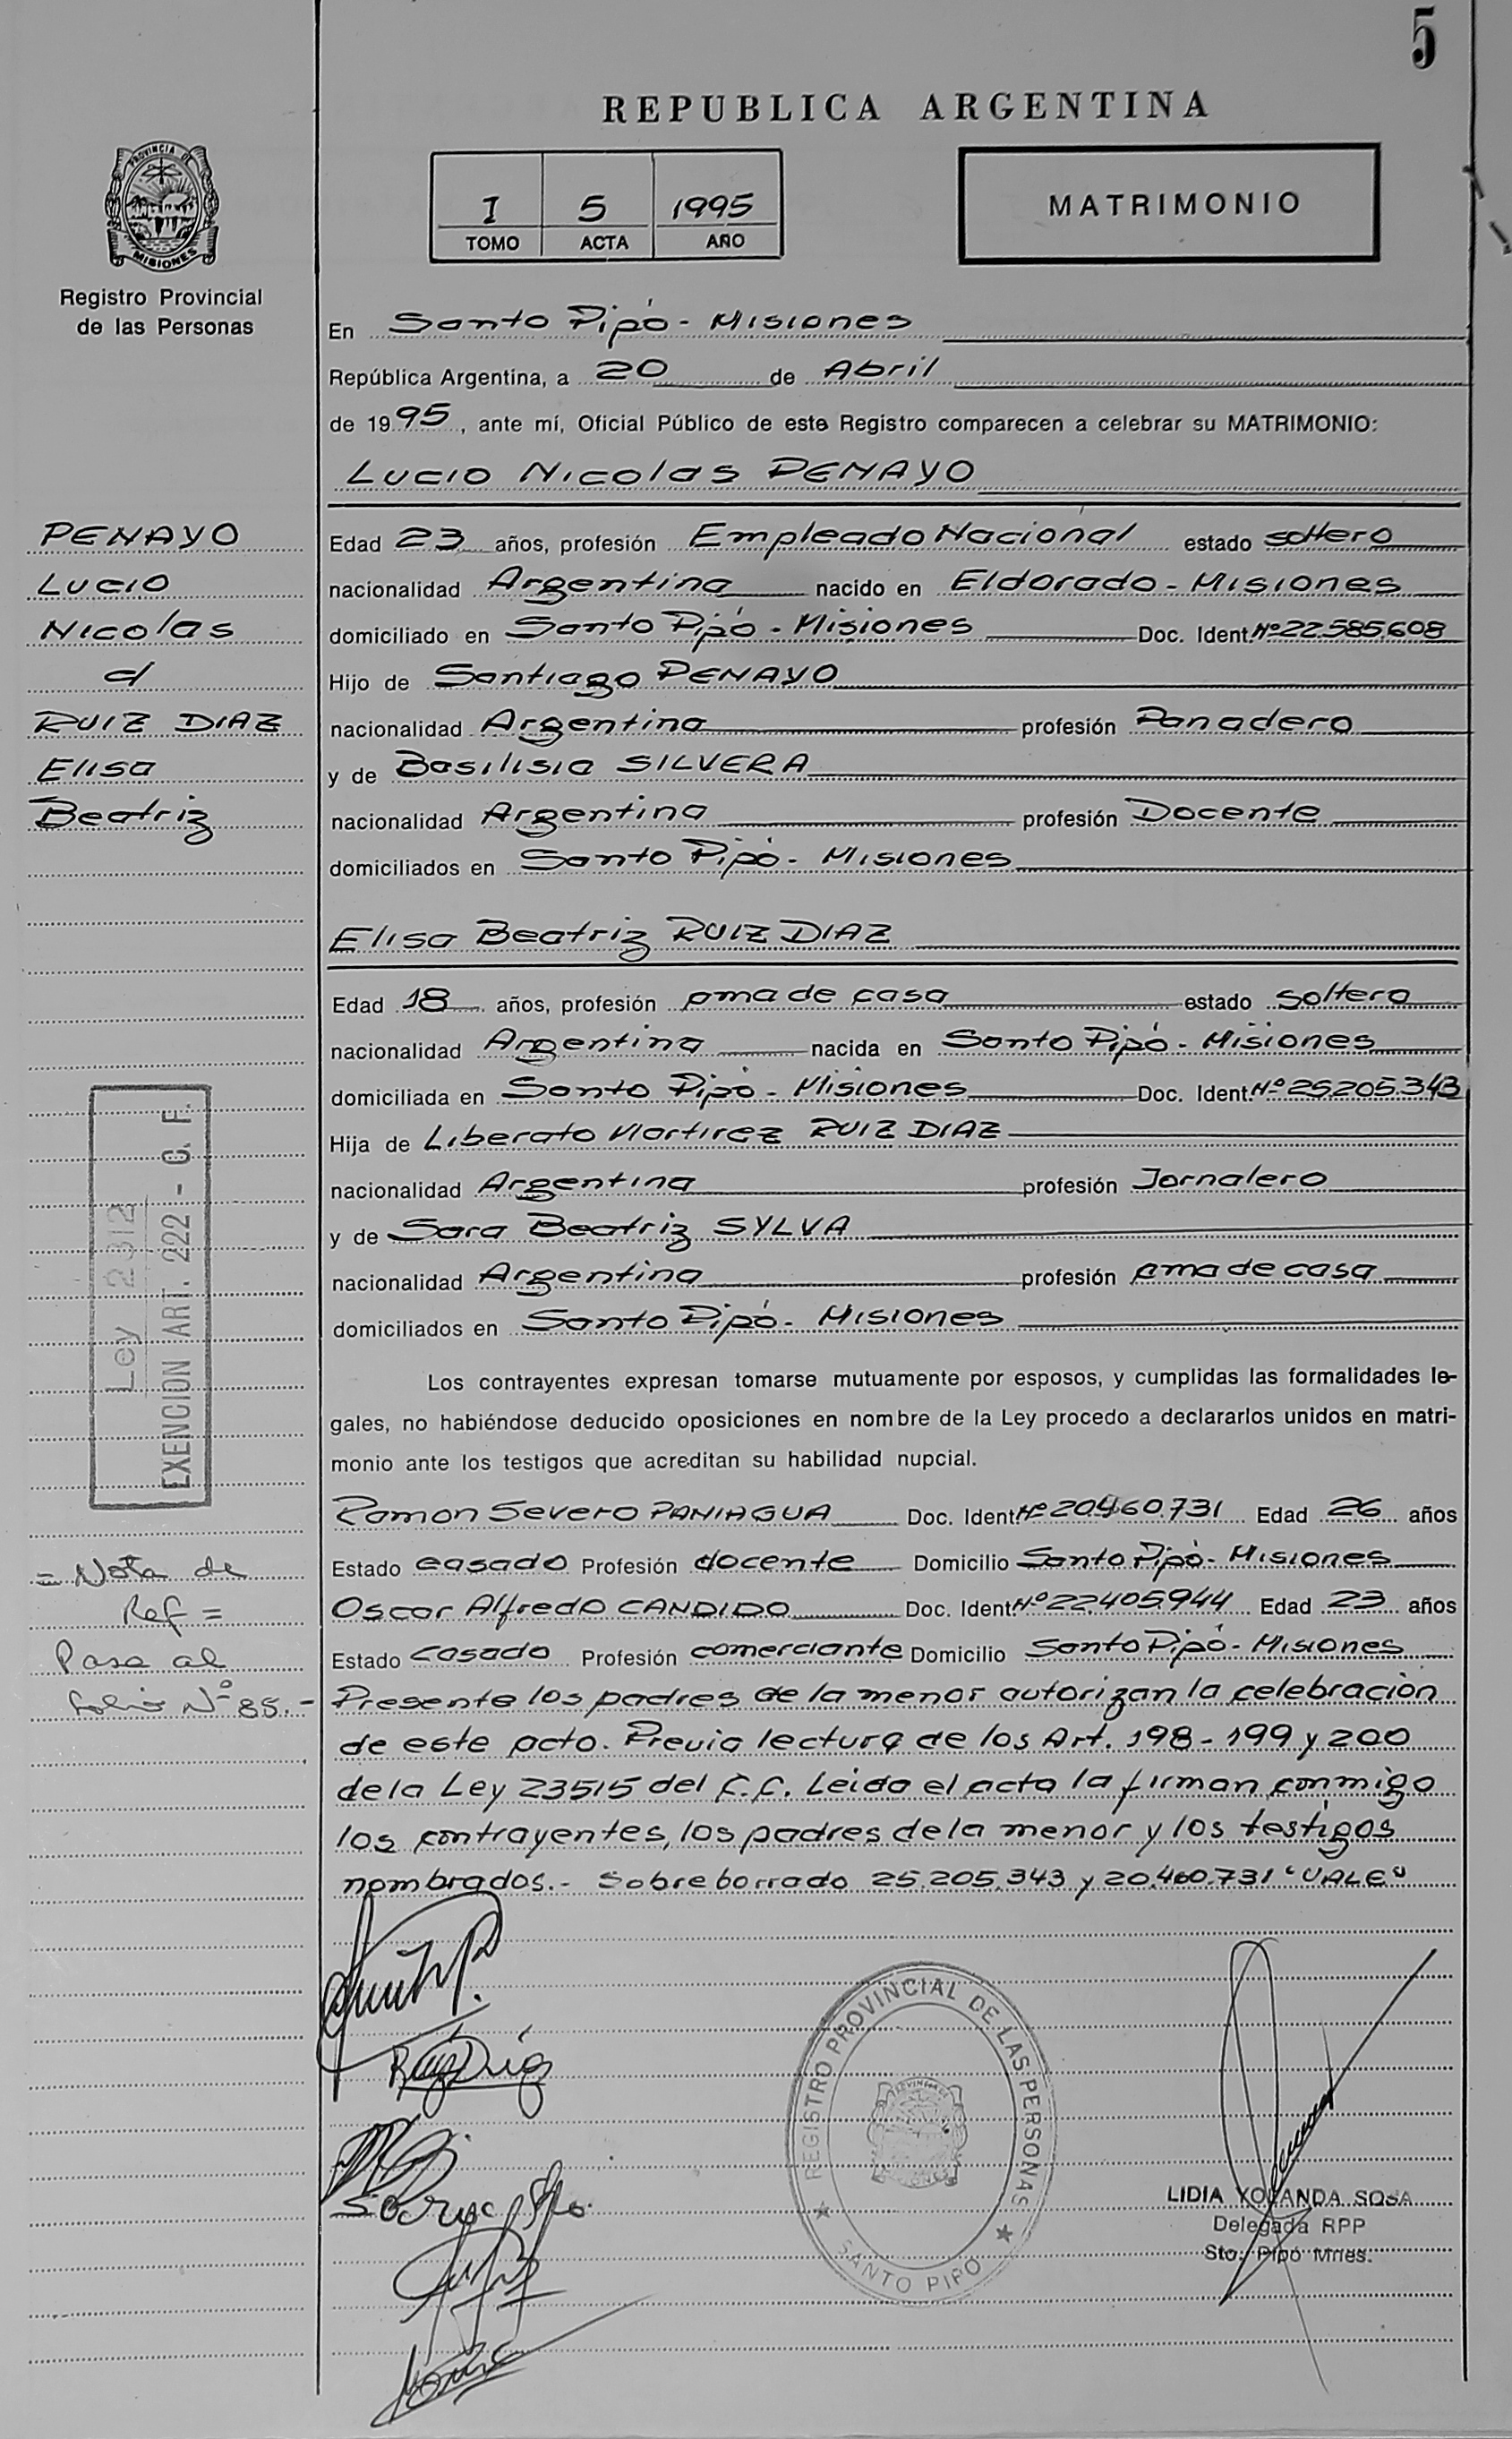 5
REPUBLICA ARGENTINA
PROVINCIA DE
MISIONES
Registro Provincial
de las Personas
I 5 1995
TOMO ACTA AÑO
MATRIMONIO
En Santo Pipó - Misiones
República Argentina, a 20 de Abril
de 1995, ante mí, Oficial Público de este Registro comparecen a celebrar su MATRIMONIO:
Lucio Nicolas PENAYO
PENAYO
Lucio
Nicolas
c/
RUIZ DIAZ
Elisa
Beatriz
Edad 23 años, profesión Empleado Nacional estado soltero
nacionalidad Argentina nacido en Eldorado - Misiones
domiciliado en Santo Pipó - Misiones Doc. Ident. Nº 22.585.608
Hijo de Santiago PENAYO
nacionalidad Argentina profesión Panadero
y de Basilisia SILVERA
nacionalidad Argentina profesión Docente
domiciliados en Santo Pipó - Misiones
Elisa Beatriz RUIZ DIAZ
Edad 18 años, profesión ama de casa estado soltera
nacionalidad Argentina nacida en Santo Pipó - Misiones
domiciliada en Santo Pipó - Misiones Doc. Ident. Nº 25.205.343
Hija de Liberato Martirez RUIZ DIAZ
nacionalidad Argentina profesión Jornalero
y de Sara Beatriz SYLVA
nacionalidad Argentina profesión ama de casa
domiciliados en Santo Pipó - Misiones
Ley 2312
EXENCION ART. 222 - C. F.
Los contrayentes expresan tomarse mutuamente por esposos, y cumplidas las formalidades le-
gales, no habiéndose deducido oposiciones en nombre de la Ley procedo a declararlos unidos en matri-
monio ante los testigos que acreditan su habilidad nupcial.
Ramon Severo PANIAGUA Doc. Ident Nº 20.460.731 Edad 26 años
Estado casado Profesión docente Domicilio Santo Pipó - Misiones
Oscar Alfredo CANDIDO Doc. Ident. Nº 22.405.944 Edad 23 años
Estado casado Profesión comerciante Domicilio Santo Pipó - Misiones
= Nota de
Ref =
Pasa al
folio Nº 85.-
Presente los padres de la menor autorizan la celebraciòn
de este acto. Previa lectura de los Art. 198 - 199 y 200
de la Ley 23515 del C.C. Leida el acta la firman conmigo
los contrayentes, los padres de la menor y los testigos
nombrados.- Sobre borrado 25.205.343 y 20.460.731 "VALE"
Ruiz Diaz
REGISTRO PROVINCIAL DE LAS PERSONAS
SANTO PIPO
LIDIA YOLANDA SOSA
Delegada RPP
Sto. Pipó Mnes.